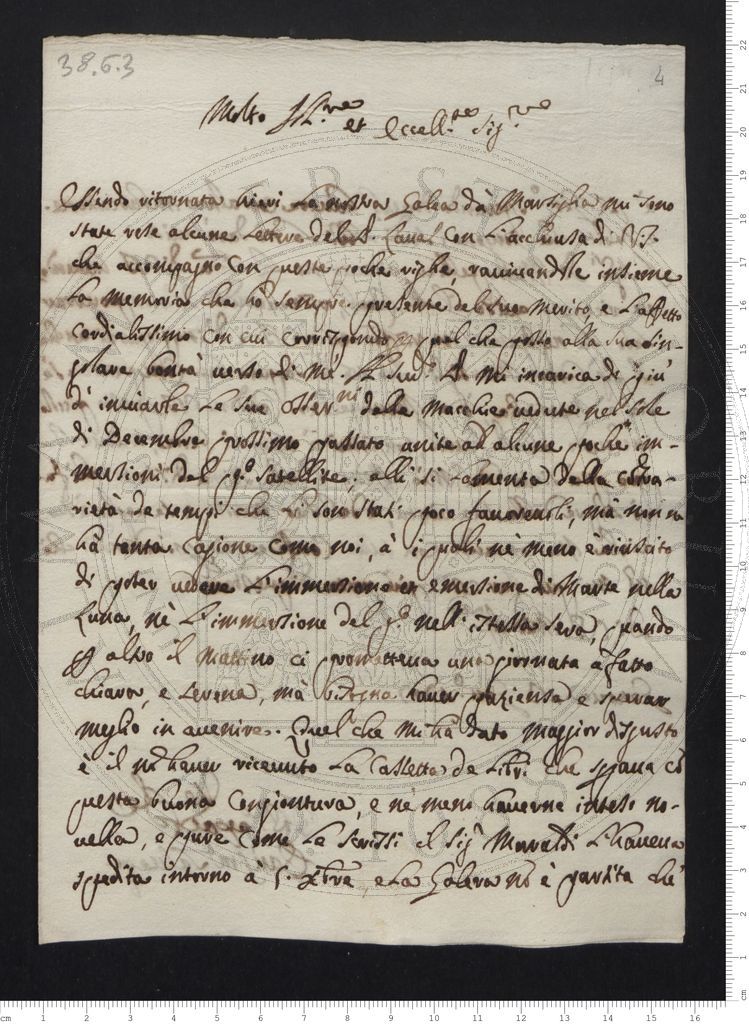 38.6.3
4
Molto Ill.re et Eccell.te Sig.re
Essendo ritornata hieri la nostra Galea dà Marsiglia mi sono
state rese alcune lettere del P. Laval con l'acchiusa di V.S.
che accompagno con queste poche righe, ravivandole insieme
la memoria che hò sempre presente del suo merito, e l'affetto
cordialissimo con cui corrispondo p quel che posso alla sua sin-
golare bontà verso di me. Il sud.o P. mi incarica di più
d'inviarle le sue osser.ni delle macchie vedute nel sole
di Decembre prossimo passato unite ad alcune poche im-
mersioni del p.o satellite, elli si lamenta della contra-
rietà de tempi che li son stati poco favorevoli, mà non n
hà tanta cagione come noi, à i quali nè meno è riuscito
di poter vedere l'immersione et emersione di Marte nella
Luna, nè l'immersione del p.o nell'istessa sera, quando
p altro il mattino ci prometteva una giornata affatto
chiara, e serena, mà bisogna haver pazienza e sperar
meglio in avenire. Quel che mi hà dato maggior disgusto
è il nō haver ricevuto la Cassetta de libri che sperava cō
questa buona congiontura, e nè meno haverne inteso no-
vella, e pure come le scrissi il Sig.r Maraldi l'haveva
spedita intorno à 5. Xbre, e la Galera nō è partita che